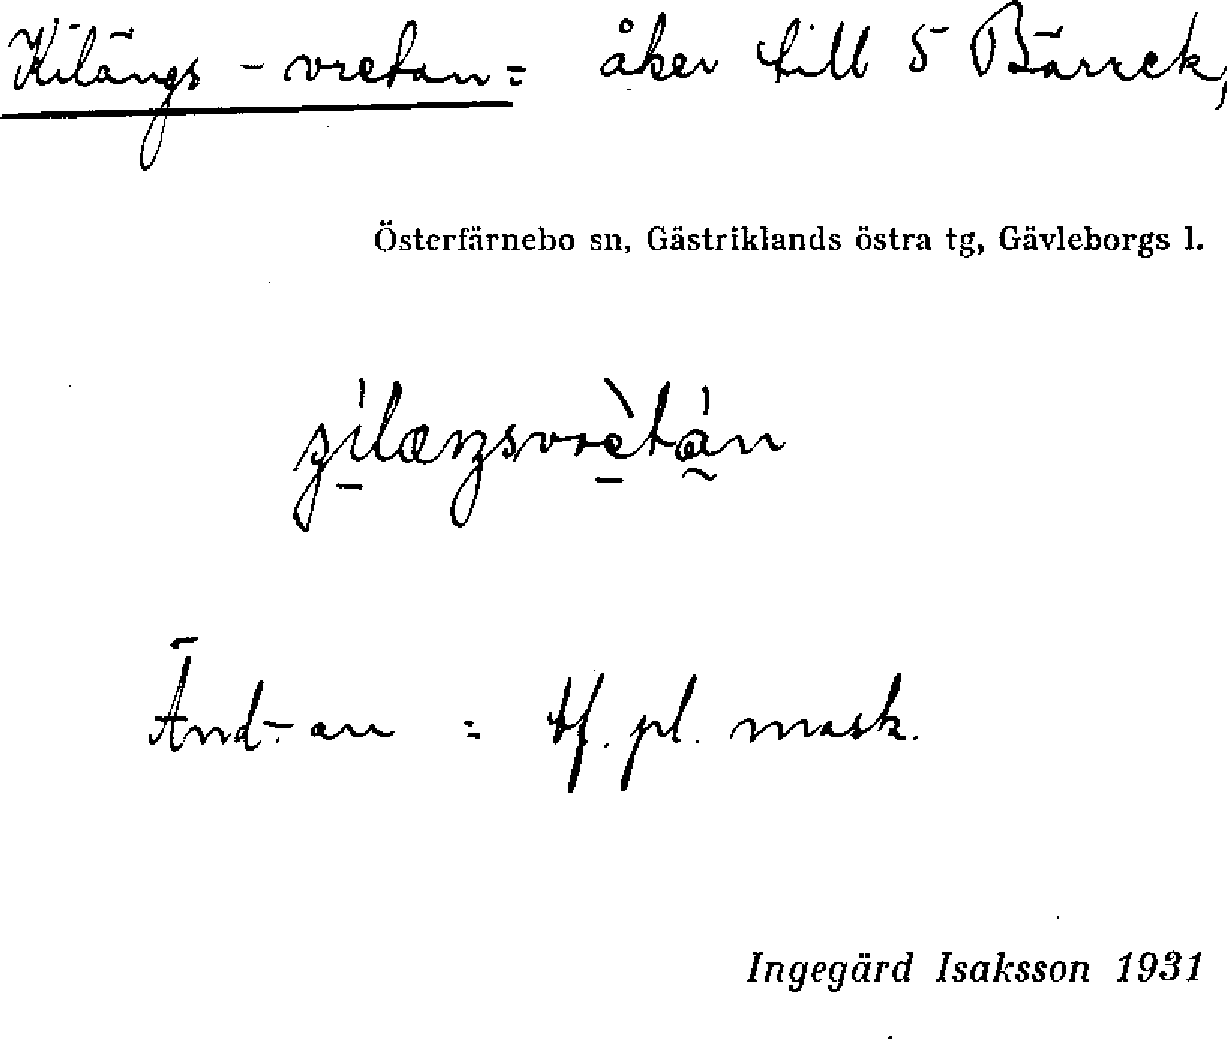 Kilängs - vretan = åker till 5 Bärrek,
Österfärnebo sn, Gästriklands östra tg, Gävleborgs l.
Änd. - an = bf. pl. mask.
Ingegärd Isaksson 1931